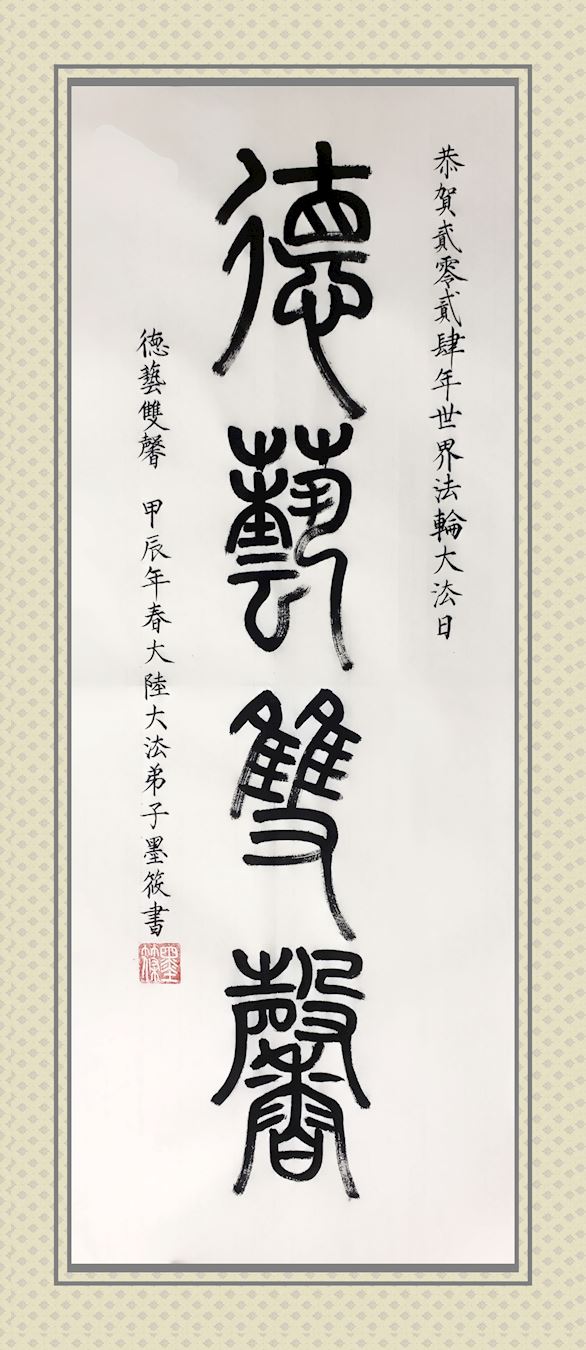 恭賀貳零貳肆年世界法輪大法日
德藝雙馨
德藝雙馨 甲辰年春大陸大法弟子墨筱書
墨筱